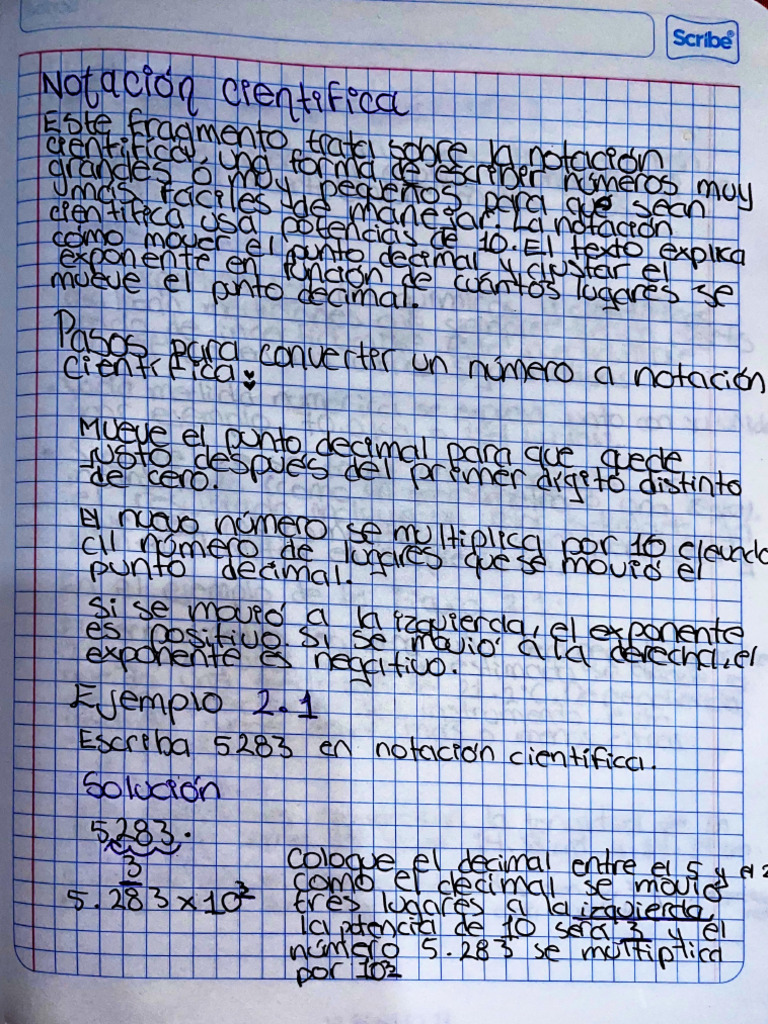 Scribe
Notación científica
Este fragmento trata sobre la notación
científica, una forma de escriber números muy
grandes o muy pequeños para que sean
y más fáciles de manejar. La notación
científica usa potencias de 10. El texto explica
cómo mover el punto decimal y ajustar el
exponente en función de cuántos lugares se
mueve el punto decimal.
Pasos para converter un número a notación
científica:
Mueve el punto decimal para que quede
justo después del primer dígito distinto
de cero.
El nuevo número se multiplica por 10 elevado
al número de lugares que se movió el
punto decimal.
Si se movió a la izquierda, el exponente
es positivo. Si se movió a la derecha, el
exponente es negativo.
Ejemplo 2.1
Escriba 5283 en notación científica.
Solución
5283.
3
5.283 x 10³
Coloque el decimal entre el 5 y el 2
como el decimal se movió
tres lugares a la izquierda,
la potencia de 10 será 3 y el
número 5.283 se multiplica
por 10³